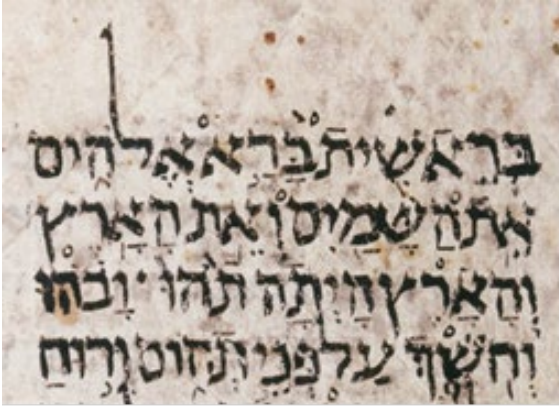 בְּרֵאשִׁית בָּרָא אֱלֹהִים
אֵת הַשָּׁמַיִם וְאֵת הָאָרֶץ
וְהָאָרֶץ הָיְתָה תֹהוּ וָבֹהוּ
וְחֹשֶׁךְ עַל פְּנֵי תְהוֹם וְרוּחַ